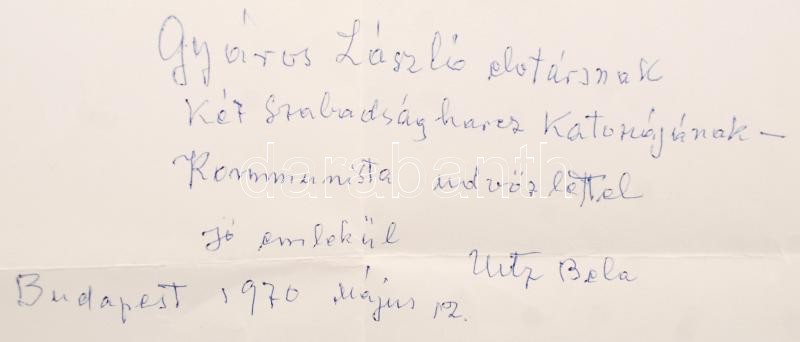 Gyáros László elvtársnak
Két szabadságharcz Katonájának —
Kommunista üdvözlettel
jó emlékül
Uitz Bela
Budapest 1970 Május 12.
darabanth.com